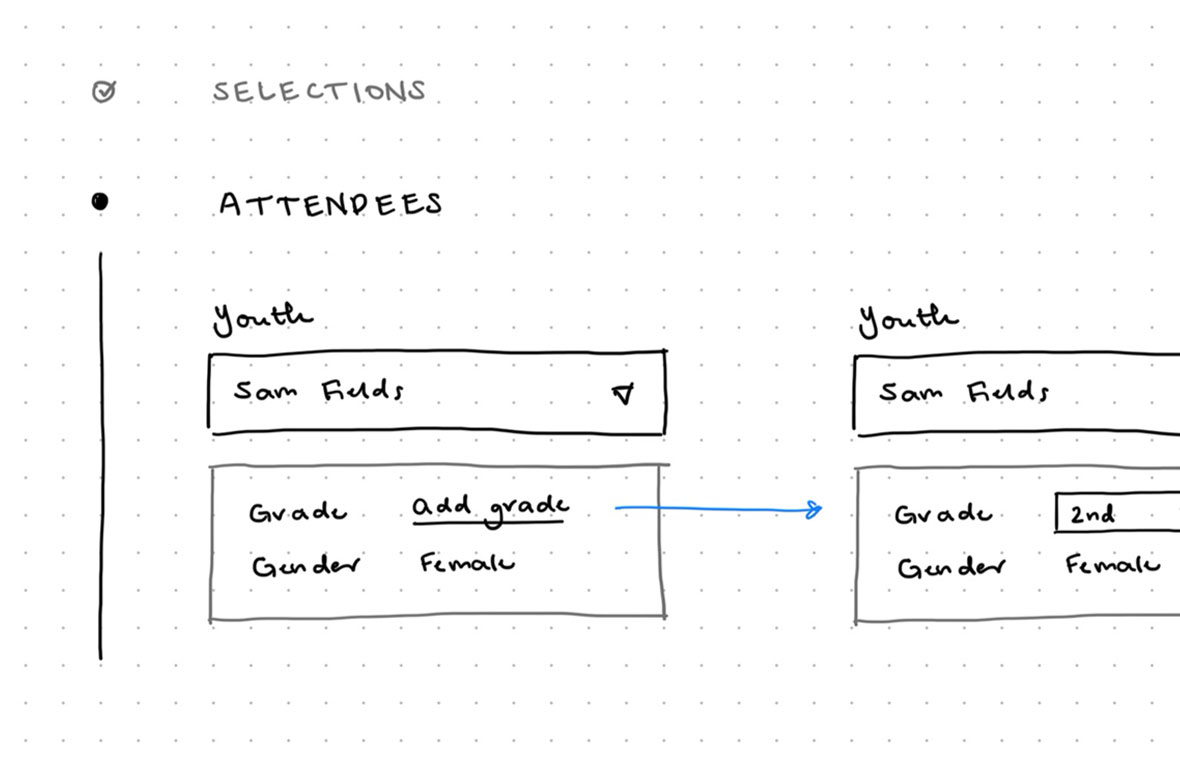 SELECTIONS
ATTENDEES
Youth
Sam Fields
Grade add grade
Gender Female
Youth
Sam Fields
Grade 2nd
Gender Female